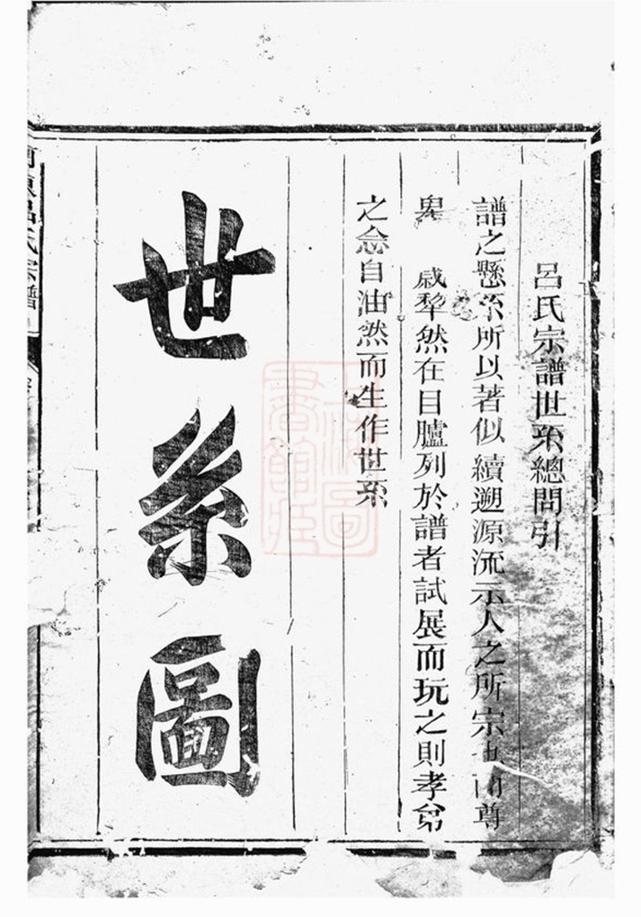 呂氏宗譜世系總問引
譜之懸系所以著似續遡源流示人之所宗也尊
卑咸犂然在目臚列於譜者試展而玩之則孝弟
之念自油然而生作世系
世系圖
呂氏宗譜